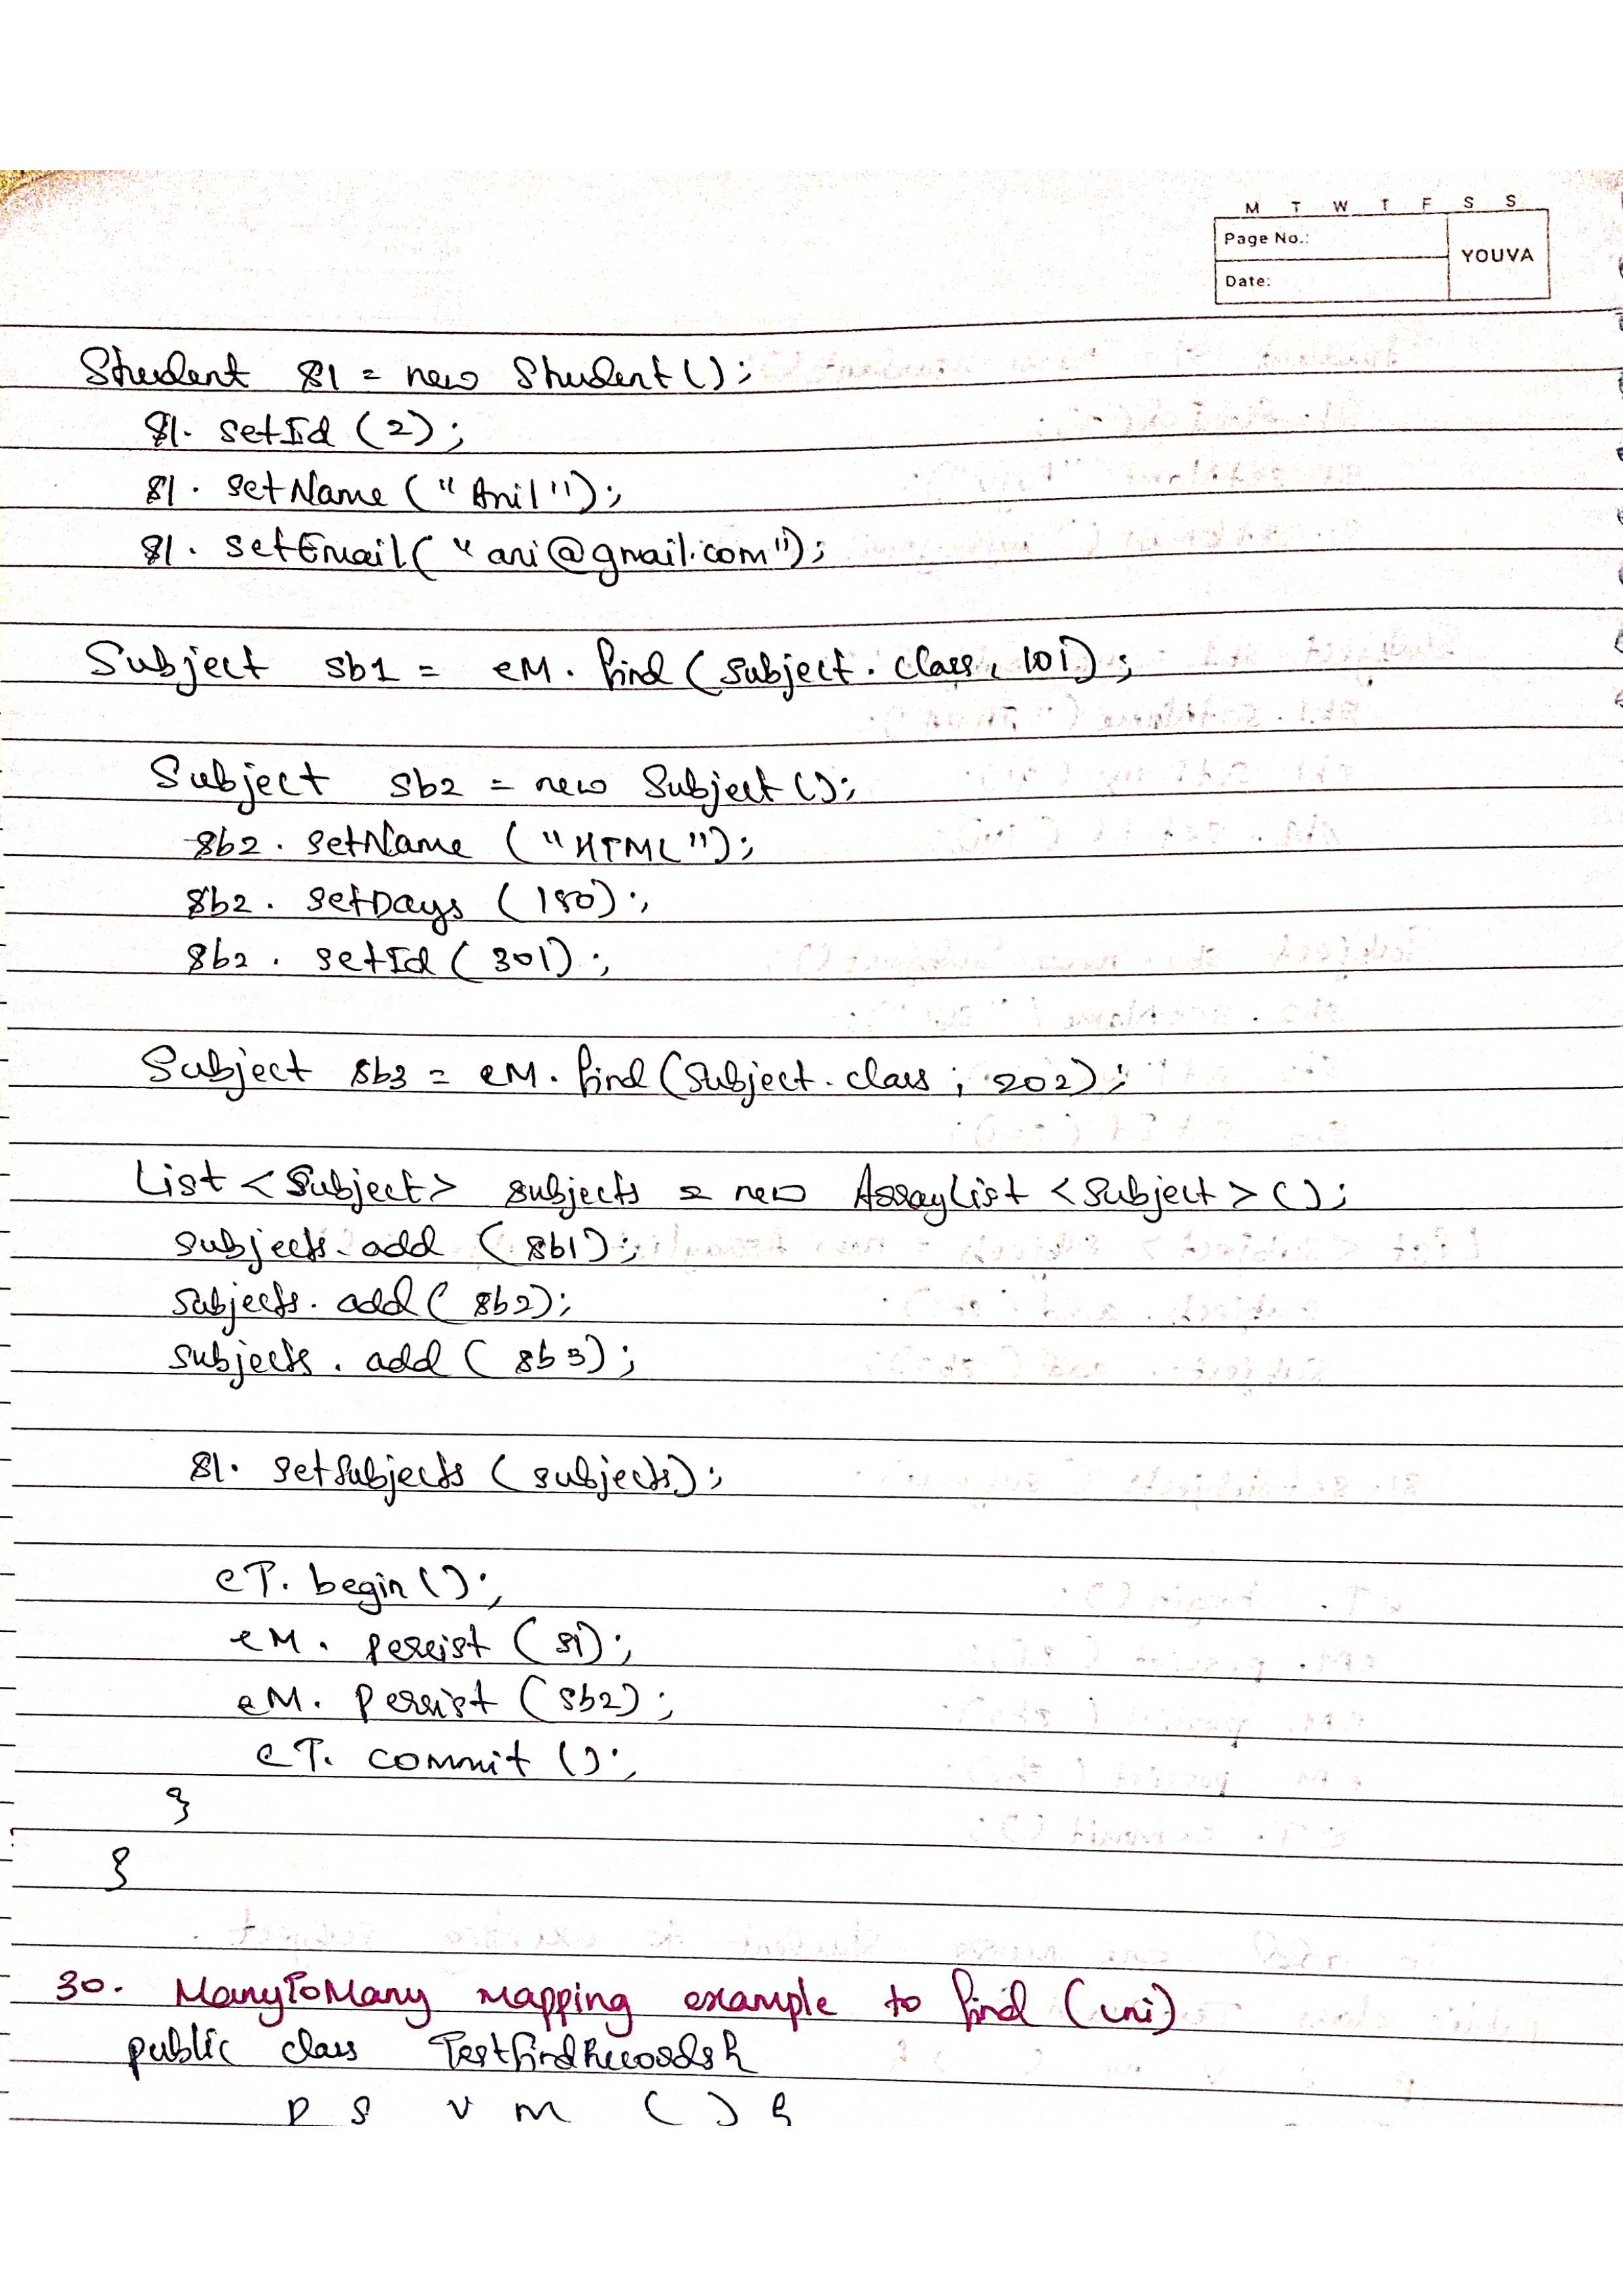 M T W T F S S
Page No.:
YOUVA
Date:
Student s1 = new Student();
s1. setId (2);
s1. setName ("Anil");
s1. setEmail( "ani@gmail.com");
Subject sb1 = eM. find (subject. class, 101);
Subject sb2 = new Subject ();
sb2. setName ("HTML");
sb2. setDays (180);
sb2. setId ( 301);
Subject sb3 = eM. find (Subject. class ; 202);
List <Subject> subjects = new ArrayList <subject> ();
subjects. add (sb1);
subjects. add ( sb2);
subjects. add ( sb3);
s1. setSubjects (subjects);
eT. begin ();
eM. persist (s1);
eM. persist (sb2);
eT. commit ();
}
}
30. ManyToMany mapping example to find (uni)
public class TestfindRecords{
p s v m () {